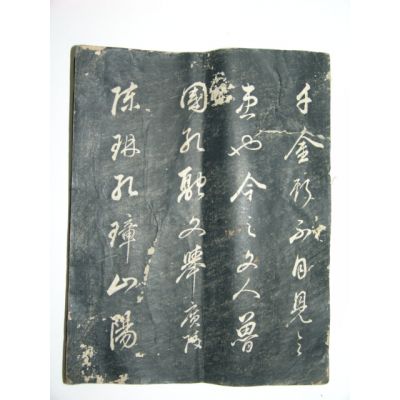 千金斯不自見之
患也今之文人魯
國孔融文舉廣陵
陳琳孔璋山陽